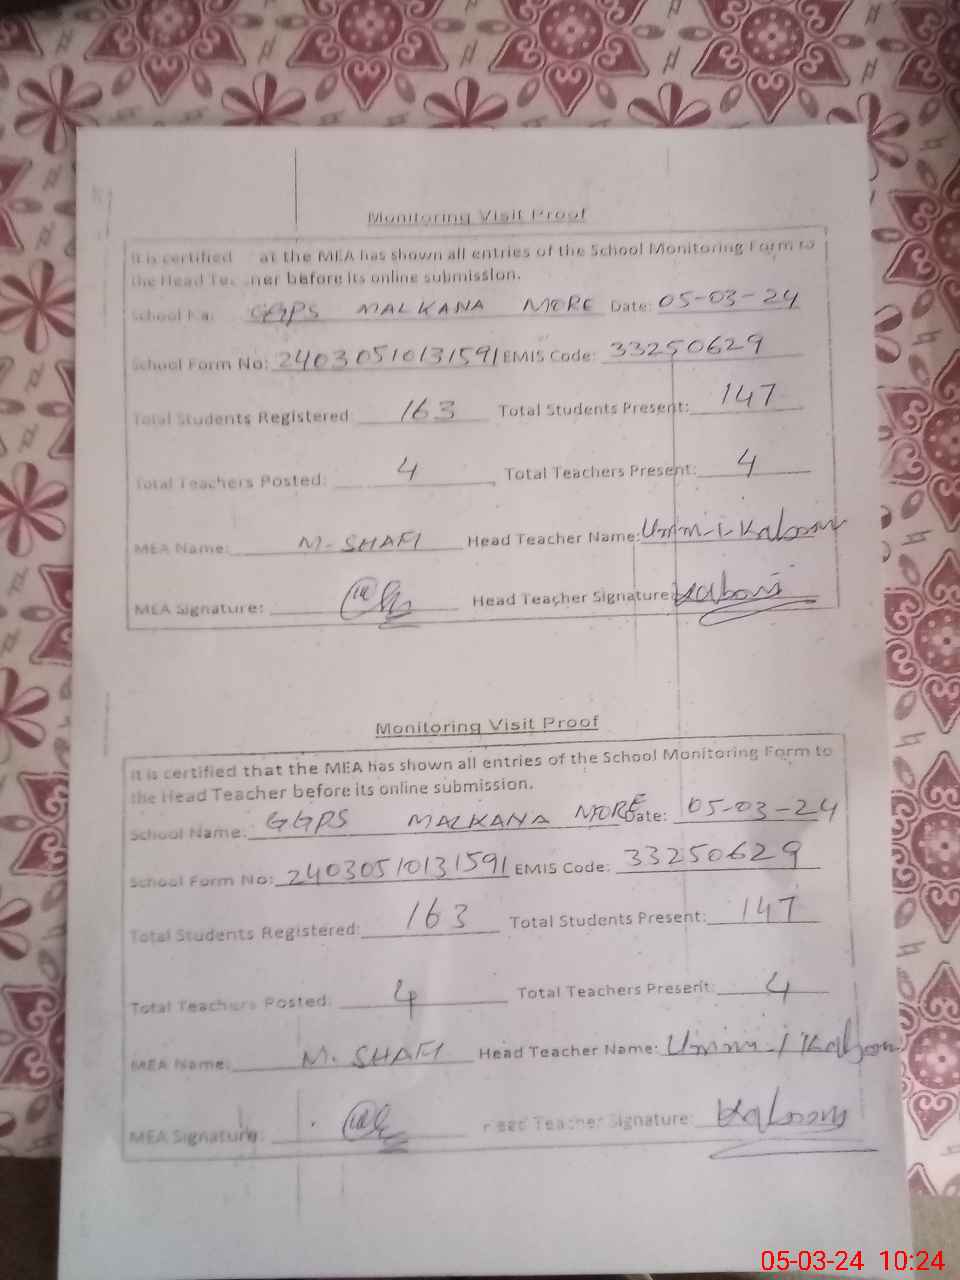 Monitoring Visit Proof
It is certified at the MEA has shown all entries of the School Monitoring Form to
the Head Teacher before its online submission.
School Na: GGPS MALKANA MORE Date: 05-03-24
School Form No: 24030510131591 EMIS Code: 33250629
Total Students Registered: 163 Total Students Present: 147
Total Teachers Posted: 4 Total Teachers Present: 4
MEA Name: M-SHAFI Head Teacher Name: Umm-i-Kalsoom
MEA Signature: Head Teacher Signature:
Monitoring Visit Proof
It is certified that the MEA has shown all entries of the School Monitoring Form to
the Head Teacher before its online submission.
School Name: GGPS MALKANA MORE Date: 05-03-24
School Form No: 24030510131591 EMIS Code: 33250629
Total Students Registered: 163 Total Students Present: 147
Total Teachers Posted: 4 Total Teachers Present: 4
MEA Name: M. SHAFI Head Teacher Name: Umm-i-Kalsoom
MEA Signature: Head Teacher Signature:
05-03-24 10:24